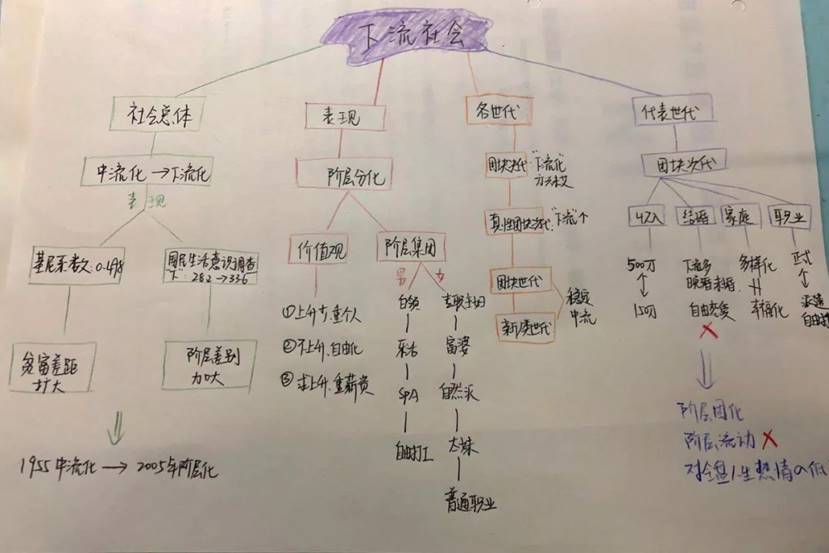 下流社会
社会总体
中流化→下流化
表现
基尼系数:0.498
国民生活意识调查
下:282→336
贫富差距
扩大
阶层差别
加大
1955中流化→2005年阶层化
表现
阶层分化
价值观
①上升才,重个人
②不上升,自由化
③求上升,重薪资
阶层集团
男
女
自领
乐活
SPA
自由打工
富婆
自然派
太妹
普通职业
各世代
团块次代
"下流化"
方兴未艾
真性团块次代
"下流"个
团块世代
新人类世代
稳定
中流
代表世代
团块次代
收入
500万
↕
150万
结婚
下者多
晚婚未婚
自由恋爱
×
家庭
多样化
幸福化
职业
正式
↕
派遣
自由打工
阶层固化
阶层流动×
对全盘人生热情の低